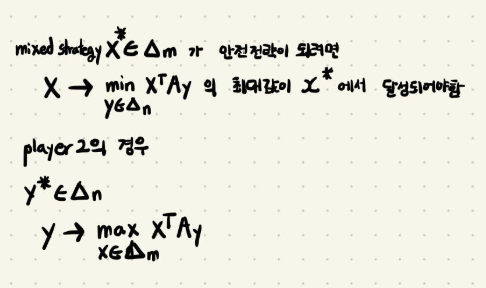 mixed strategy X* ∈ Δm 가 안전전략이 되려면
X → min XᵀAy 의 최대값이 x* 에서 달성되어야함
y∈Δn
player 2의 경우
y* ∈ Δn
y → max XᵀAy
x∈Δm